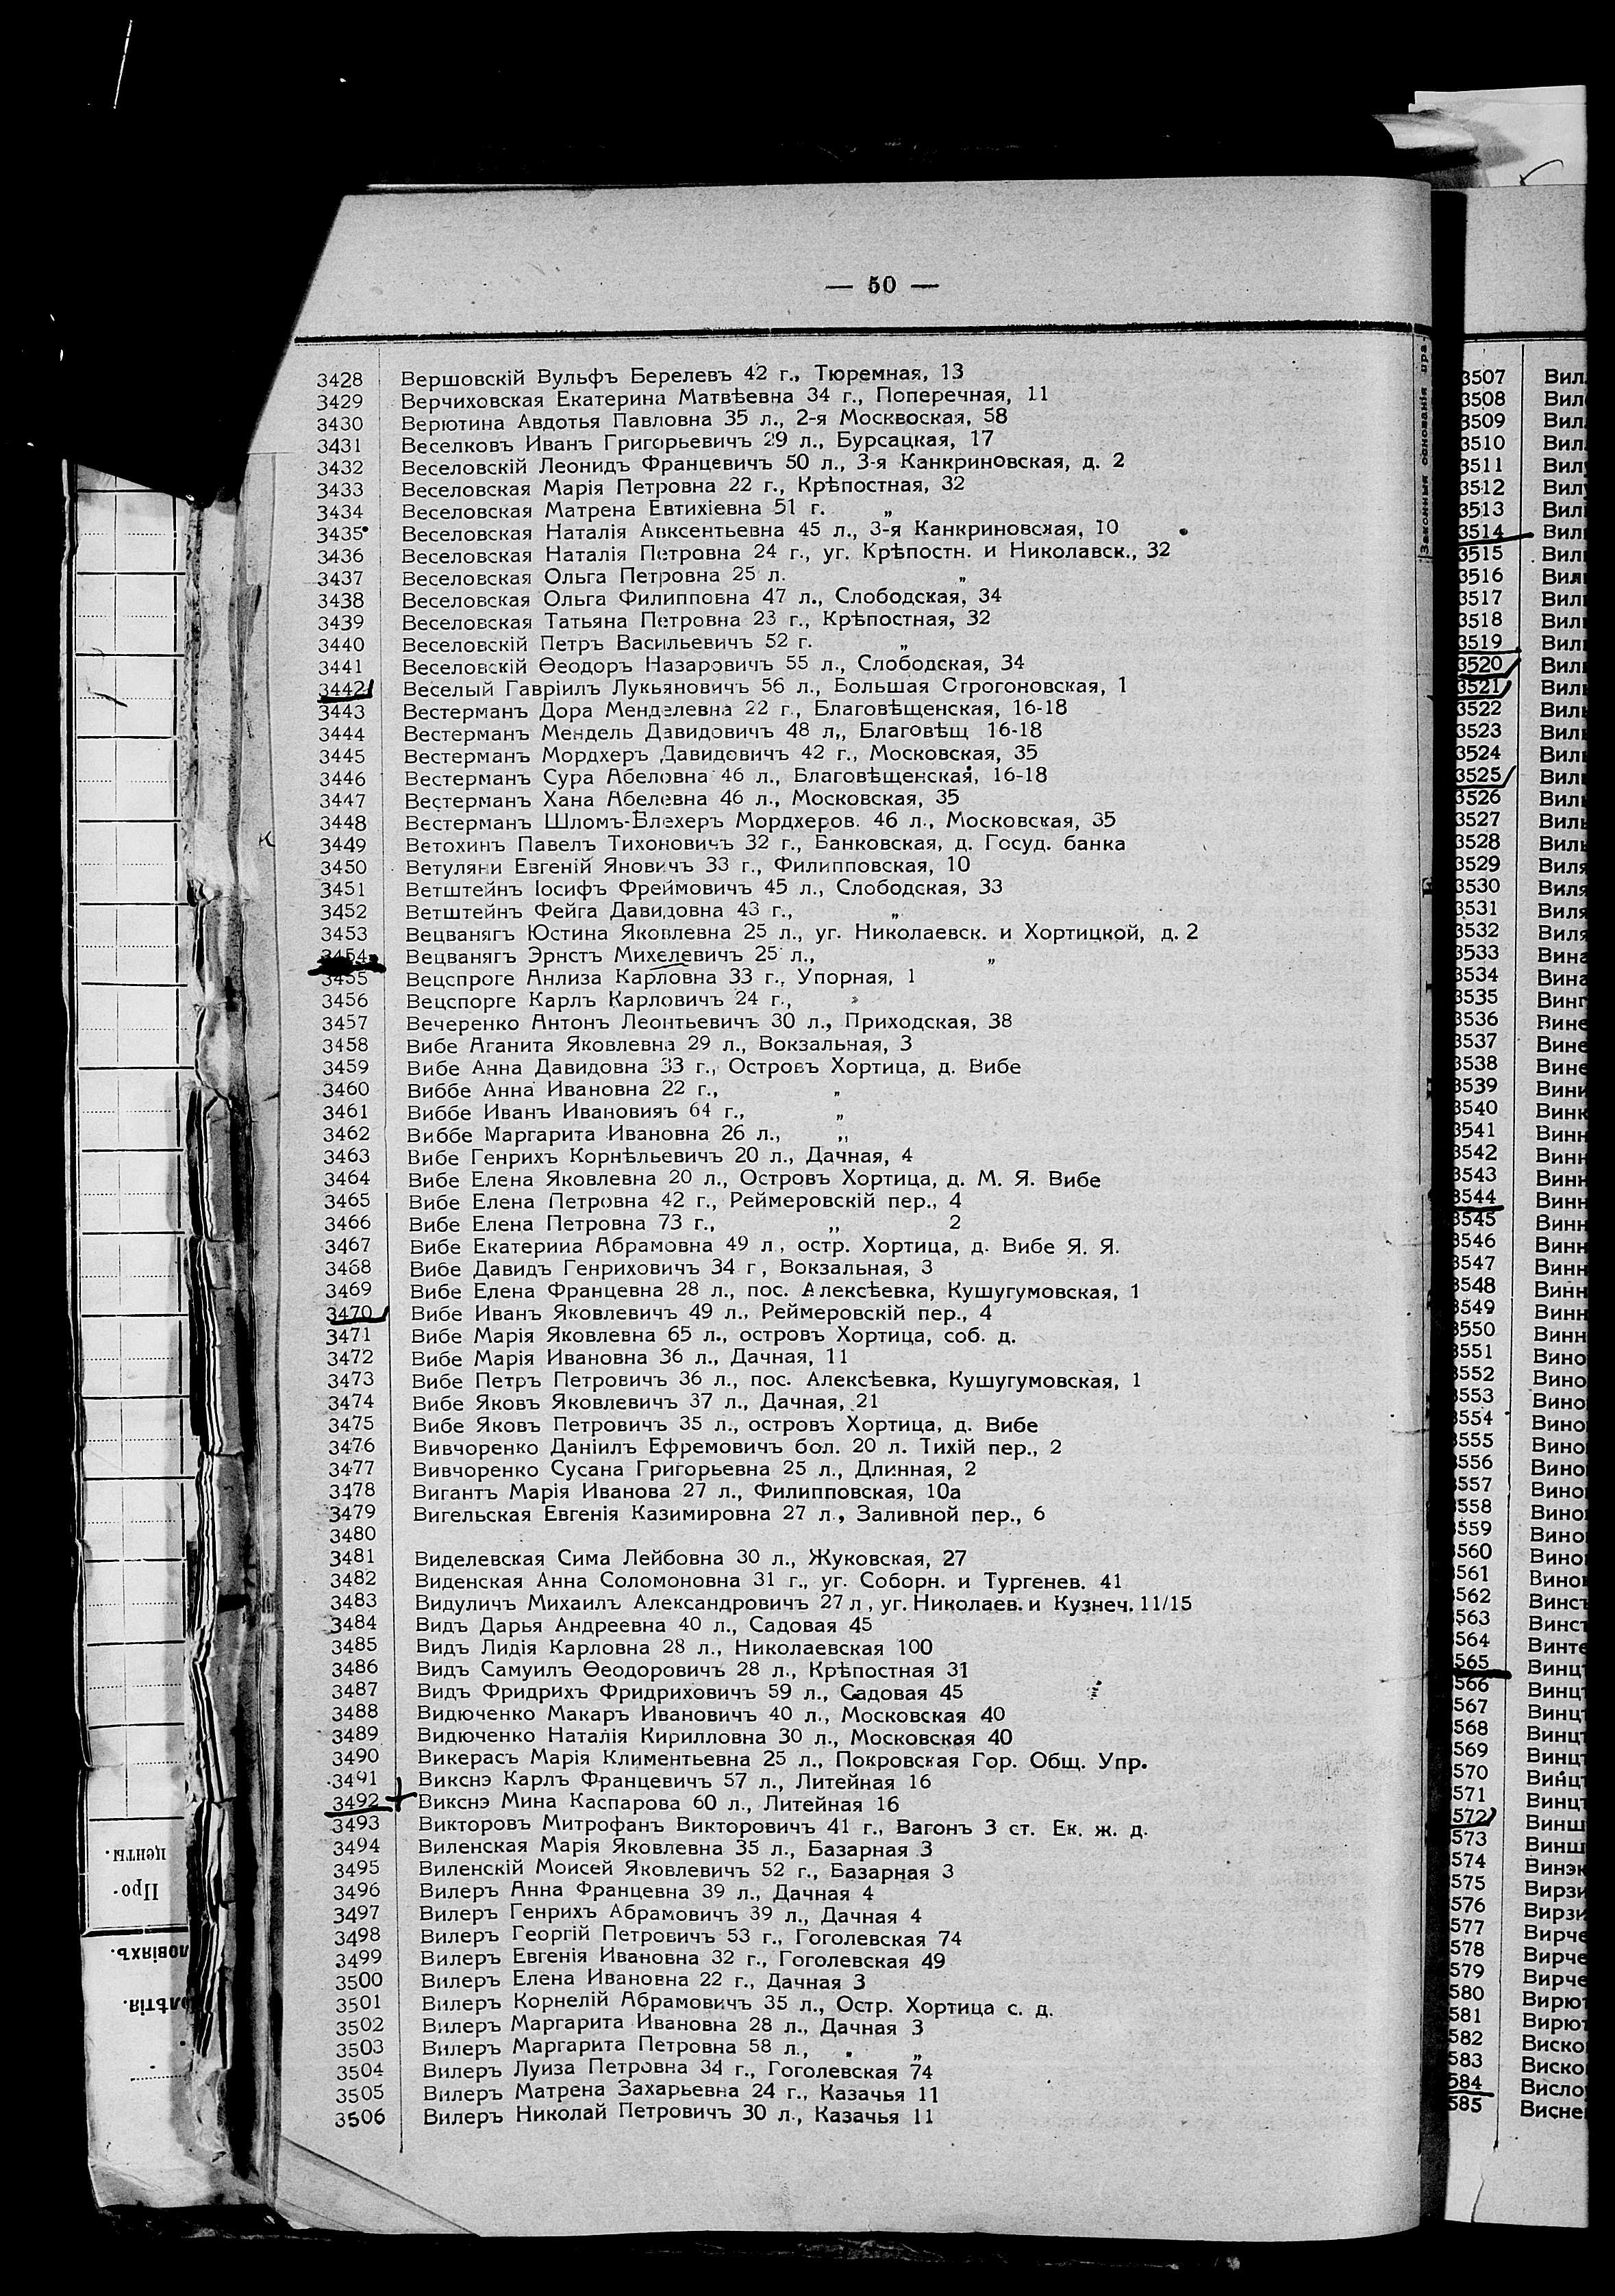 — 50 —
3428 Вершовскій Вульфъ Берелевъ 42 г., Тюремная, 13
3429 Верчиховская Екатерина Матвѣевна 34 г., Поперечная, 11
3430 Верютина Авдотья Павловна 35 л., 2-я Москвоская, 58
3431 Веселковъ Иванъ Григорьевичъ 29 л., Бурсацкая, 17
3432 Веселовскій Леонидъ Францевичъ 50 л., 3-я Канкриновская, д. 2
3433 Веселовская Марія Петровна 22 г., Крѣпостная, 32
3434 Веселовская Матрена Евтихіевна 51 г. „
3435 Веселовская Наталія Авксентьевна 45 л., 3-я Канкриновская, 10
3436 Веселовская Наталія Петровна 24 г., уг. Крѣпостн. и Николавск., 32
3437 Веселовская Ольга Петровна 25 л. „
3438 Веселовская Ольга Филипповна 47 л., Слободская, 34
3439 Веселовская Татьяна Петровна 23 г., Крѣпостная, 32
3440 Веселовскій Петръ Васильевичъ 52 г. „
3441 Веселовскій Ѳеодоръ Назаровичъ 55 л., Слободская, 34
3442 Веселый Гавріилъ Лукьяновичъ 56 л., Большая Строгоновская, 1
3443 Вестерманъ Дора Менделевна 22 г., Благовѣщенская, 16-18
3444 Вестерманъ Мендель Давидовичъ 48 л,, Благовѣщ 16-18
3445 Вестерманъ Мордхеръ Давидовичъ 42 г., Московская, 35
3446 Вестерманъ Сура Абеловна 46 л., Благовѣщенская, 16-18
3447 Вестерманъ Хана Абелевна 46 л., Московская, 35
3448 Вестерманъ Шломъ-Блехеръ Мордхеров. 46 л., Московская, 35
3449 Ветохинъ Павелъ Тихоновичъ 32 г., Банковская, д. Госуд. банка
3450 Ветуляни Евгеній Яновичъ 33 г., Филипповская, 10
3451 Ветштейнъ Іосифъ Фреймовичъ 45 л., Слободская, 33
3452 Ветштейнъ Фейга Давидовна 43 г., „
3453 Вецванягъ Юстина Яковлевна 25 л., уг. Николаевск. и Хортицкой, д. 2
3454 Вецванягъ Эрнстъ Михелевичъ 25 л., „
3455 Вецспроге Анлиза Карловна 33 г., Упорная, 1
3456 Вецспорге Карлъ Карловичъ 24 г., „
3457 Вечеренко Антонъ Леонтьевичъ 30 л., Приходская, 38
3458 Вибе Аганита Яковлевна 29 л., Вокзальная, 3
3459 Вибе Анна Давидовна 33 г., Островъ Хортица, д. Вибе
3460 Виббе Анна Ивановна 22 г., „
3461 Виббе Иванъ Ивановияъ 64 г., „
3462 Виббе Маргарита Ивановна 26 л., „
3463 Вибе Генрихъ Корнѣльевичъ 20 л., Дачная, 4
3464 Вибе Елена Яковлевна 20 л., Островъ Хортица, д. М. Я. Вибе
3465 Вибе Елена Петровна 42 г., Реймеровскій пер., 4
3466 Вибе Елена Петровна 73 г., „ 2
3467 Вибе Екатерииа Абрамовна 49 л , остр. Хортица, д. Вибе Я. Я.
3468 Вибе Давидъ Генриховичъ 34 г , Вокзальная, 3
3469 Вибе Елена Францевна 28 л., пос. Алексѣевка, Кушугумовская, 1
3470 Вибе Иванъ Яковлевичъ 49 л., Реймеровскій пер., 4
3471 Вибе Марія Яковлевна 65 л., островъ Хортица, соб. д.
3472 Вибе Марія Ивановна 36 л., Дачная, 11
3473 Вибе Петръ Петровичъ 36 л., пос. Алексѣевка, Кушугумовская, 1
3474 Вибе Яковъ Яковлевичъ 37 л., Дачная, 21
3475 Вибе Яковъ Петровичъ 35 л., островъ Хортица, д. Вибе
3476 Вивчоренко Даніилъ Ефремовичъ бол. 20 л. Тихій пер., 2
3477 Вивчоренко Сусана Григорьевна 25 л., Длинная, 2
3478 Вигантъ Марія Иванова 27 л., Филипповская, 10а
3479 Вигельская Евгенія Казимировна 27 л., Заливной пер., 6
3480
3481 Виделевская Сима Лейбовна 30 л., Жуковская, 27
3482 Виденская Анна Соломоновна 31 г., уг. Соборн. и Тургенев. 41
3483 Видуличъ Михаилъ Александровичъ 27 л , уг. Николаев. и Кузнеч. 11/15
3484 Видъ Дарья Андреевна 40 л., Садовая 45
3485 Видъ Лидія Карловна 28 л., Николаевская 100
3486 Видъ Самуилъ Ѳеодоровичъ 28 л., Крѣпостная 31
3487 Видъ Фридрихъ Фридриховичъ 59 л., Садовая 45
3488 Видюченко Макаръ Ивановичъ 40 л., Московская 40
3489 Видюченко Наталія Кирилловна 30 л., Московская 40
3490 Викерасъ Марія Климентьевна 25 л., Покровская Гор. Общ. Упр.
3491 Викснэ Карлъ Францевичъ 57 л., Литейная 16
3492 Викснэ Мина Каспарова 60 л., Литейная 16
3493 Викторовъ Митрофанъ Викторовичъ 41 г., Вагонъ 3 ст. Ек. ж. д.
3494 Виленская Марія Яковлевна 35 л., Базарная 3
3495 Виленскій Моисей Яковлевичъ 52 г., Базарная 3
3496 Вилеръ Анна Францевна 39 л., Дачная 4
3497 Вилеръ Генрихъ Абрамовичъ 39 л., Дачная 4
3498 Вилеръ Георгій Петровичъ 53 г., Гоголевская 74
3499 Вилеръ Евгенія Ивановна 32 г., Гоголевская 49
3500 Вилеръ Елена Ивановна 22 г., Дачная 3
3501 Вилеръ Корнелій Абрамовичъ 35 л., Остр. Хортица с. д.
3502 Вилеръ Маргарита Ивановна 28 л., Дачная 3
3503 Вилеръ Маргарита Петровна 58 л., „ „
3504 Вилеръ Луиза Петровна 34 г., Гоголевская 74
3505 Вилеръ Матрена Захарьевна 24 г., Казачья 11
3506 Вилеръ Николай Петровичъ 30 л., Казачья 11
Законныя основанія пра-
Про-
центы.
3507 Вил
3508 Вил
3509 Вил
3510 Вил
3511 Вил
3512 Вил
3513 Вил
3514 Вил
3515 Вил
3516 Вил
3517 Вил
3518 Вил
3519 Вил
3520 Вил
3521 Вил
3522 Виль
3523 Виль
3524 Виль
3525 Виль
3526 Виль
3527 Виль
3528 Виль
3529 Виля
3530 Виля
3531 Виля
3532 Виля
3533 Вина
3534 Вина
3535 Винг
3536 Вине
3537 Вине
3538 Вине
3539 Вини
3540 Винк
3541 Винн
3542 Винн
3543 Винн
3544 Винн
3545 Винн
3546 Винн
3547 Винн
3548 Винн
3549 Винн
3550 Винн
3551 Вино
3552 Вино
3553 Вино
3554 Вино
3555 Вино
3556 Вино
557 Вино
558 Вино
559 Вино
560 Вино
561 Вино
562 Винс
563 Винст
564 Винте
565 Винц
566 Винц
567 Винц
568 Винц
569 Винц
570 Винц
571 Винц
572 Винш
573 Винш
574 Винэк
575 Вирзи
576 Вирзи
577 Вирче
578 Вирче
579 Вирче
580 Вирют
581 Вирют
582 Виско
583 Виско
584 Висло
585 Висне